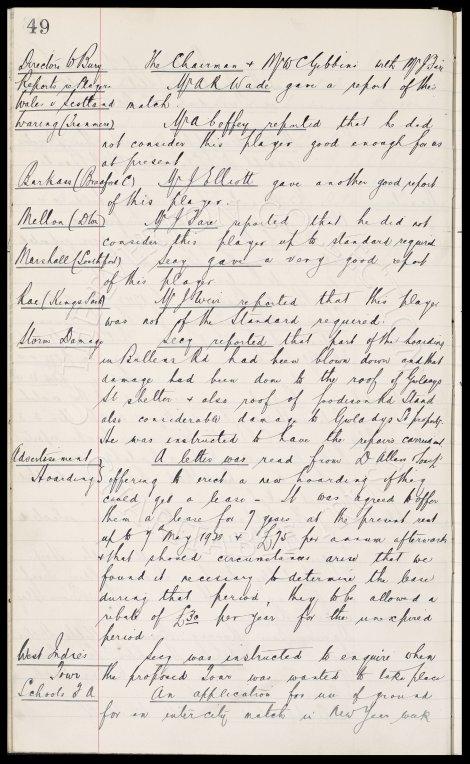 49
Directors to Bury The Chairman & Mr W C Gibbins with Mr J Fair
Reports v Players Mr A R Wade gave a report of the
Wales v Scotland match.
Waring (Tranmere) Mr A Coffey reported that he did
not consider this player good enough for us
at present
Barkass (Bradford C) Mr J Elliott gave another good report
of this player.
Mellon ( Mr J Fare reported that he did not
consider this player up to standard required
Marshall (Southport) Secy gave a very good report
of this player
Rae (Kings Park) Mr J Weir reported that this player
was not of the Standard required.
Storm Damage Secy reported that part of the hoarding
in Bullens Rd had been blown down and that
damage had been done to the roof of Gwladys
St shelter & also roof of Goodison Rd Stand
also considerable damage to Gwladys St property.
He was instructed to have the repairs carried out
Advertisement A letter was read from D Allan
Hoarding offering to erect a new hoarding if they
could get a lease - It was agreed to offer
them a lease for 7 years at the present rent
up to 7th May 1930 & £75 per annum afterwards
& that should circumstances arise that we
found it necessary to determine the lease
during that period, they to be allowed a
rebate of £30 per year for the unexpired
period.
West Indies Secy was instructed to enquire when
Tour the proposed Tour was wanted to take place
Schools F A An application for use of ground
for an inter city match in New Year week